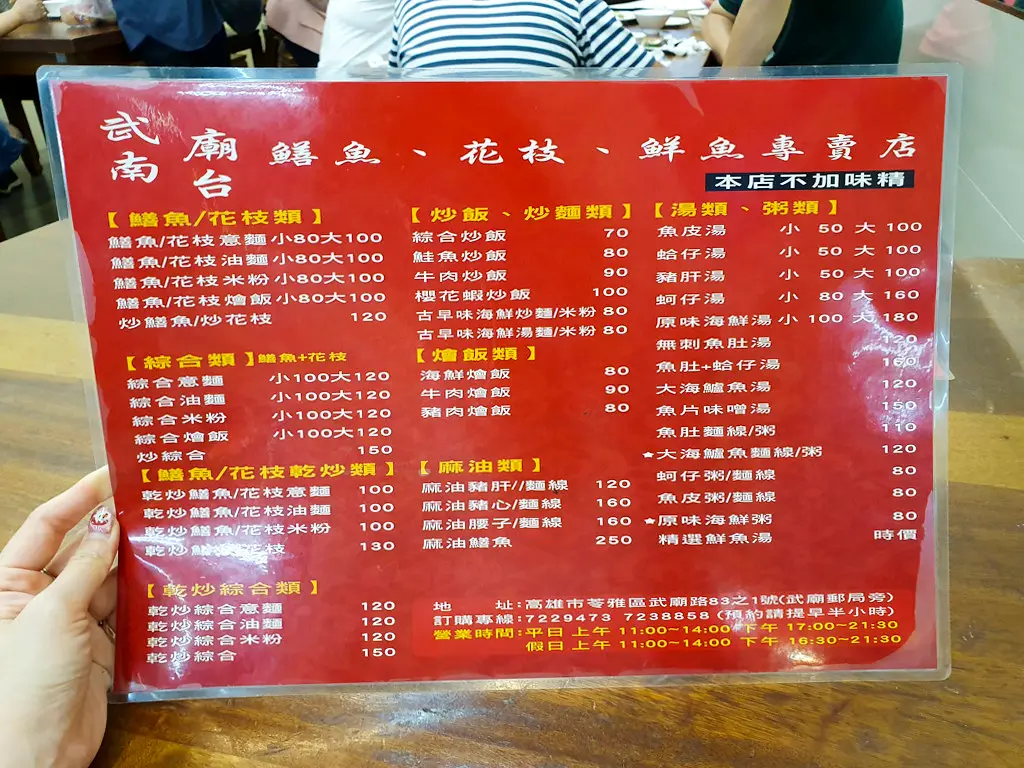 武廟 鱔魚、花枝、鮮魚專賣店
南台
本店不加味精
【鱔魚/花枝類】
鱔魚/花枝意麵 小80大100
鱔魚/花枝油麵 小80大100
鱔魚/花枝米粉 小80大100
鱔魚/花枝燴飯 小80大100
炒鱔魚/炒花枝 120
【綜合類】鱔魚+花枝
綜合意麵 小100大120
綜合油麵 小100大120
綜合米粉 小100大120
綜合燴飯 小100大120
炒綜合 150
【鱔魚/花枝乾炒類】
乾炒鱔魚/花枝意麵 100
乾炒鱔魚/花枝油麵 100
乾炒鱔魚/花枝米粉 100
乾炒鱔魚/花枝 130
【乾炒綜合類】
乾炒綜合意麵 120
乾炒綜合油麵 120
乾炒綜合米粉 120
乾炒綜合 150
【炒飯、炒麵類】
綜合炒飯 70
鮭魚炒飯 80
牛肉炒飯 90
櫻花蝦炒飯 100
古早味海鮮炒麵/米粉 80
古早味海鮮湯麵/米粉 80
【燴飯類】
海鮮燴飯 80
牛肉燴飯 90
豬肉燴飯 80
【麻油類】
麻油豬肝//麵線 120
麻油豬心/麵線 160
麻油腰子/麵線 160
麻油鱔魚 250
【湯類、粥類】
魚皮湯 小 50 大 100
蛤仔湯 小 50 大 100
豬肝湯 小 50 大 100
蚵仔湯 小 80 大 160
原味海鮮湯 小 100 大 180
無刺魚肚湯 120
魚肚+蛤仔湯 160
大海鱸魚湯 120
魚片味噌湯 150
魚肚麵線/粥 110
★大海鱸魚麵線/粥 120
蚵仔粥/麵線 80
魚皮粥/麵線 80
★原味海鮮粥 80
精選鮮魚湯 時價
地 址:高雄市苓雅區武廟路83之1號(武廟郵局旁)
訂購專線:7229473 7238858(預約請提早半小時)
營業時間:平日 上午 11:00~14:00 下午 17:00~21:30
假日 上午 11:00~14:00 下午 16:30~21:30